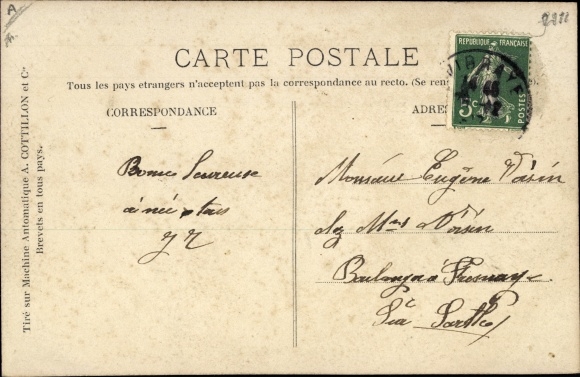 A
CARTE POSTALE
REPUBLIQUE FRANÇAISE
5c
POSTES
VIBRAYE
Tous les pays etrangers n'acceptent pas la correspondance au recto. (Se ren
CORRESPONDANCE
ADRES
Tiré sur Machine Antomatique A. COTTILLON et Cie
Brevets en tous pays.
Bonne Heureuse
année
Monsieur Eugène Voisin
chez Voisin
Boulanger à Fresnay
Sarthe